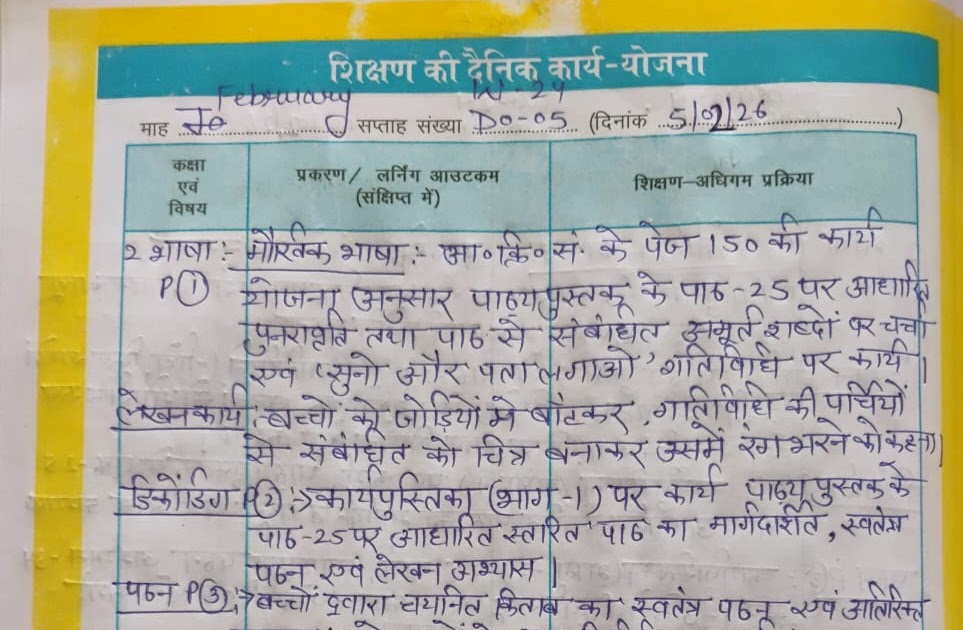 शिक्षण की दैनिक कार्य-योजना
February W-24
माह सप्ताह संख्या D0-05 (दिनांक 5/02/26)
कक्षा एवं विषय
प्रकरण/ लर्निंग आउटकम (संक्षिप्त में)
शिक्षण-अधिगम प्रक्रिया
2 भाषा :- मौखिक भाषा :- आ० क्रि० सं. के पेज 150 की कार्य
P① योजना अनुसार पाठ्यपुस्तक के पाठ-25 पर आधारित
पुनरावृति तथा पाठ से संबंधित अमूर्त शब्दों पर चर्चा
एवं 'सुनो और पता लगाओ' गतिविधि पर कार्य।
लेखन कार्य : बच्चों को जोड़ियों में बाँटकर, गतिविधि की पर्चियों
से संबंधित को चित्र बनाकर उसमें रंग भरने को कहना।
डिकोडिंग P② :→ कार्यपुस्तिका (भाग-1) पर कार्य पाठ्यपुस्तक के
पाठ-25 पर आधारित स्तरित पाठ का मार्गदर्शित, स्वतंत्र
पठन एवं लेखन अभ्यास।
पठन P③ :→ बच्चों द्वारा चयनित किताब का स्वतंत्र पठन एवं अतिरिक्त